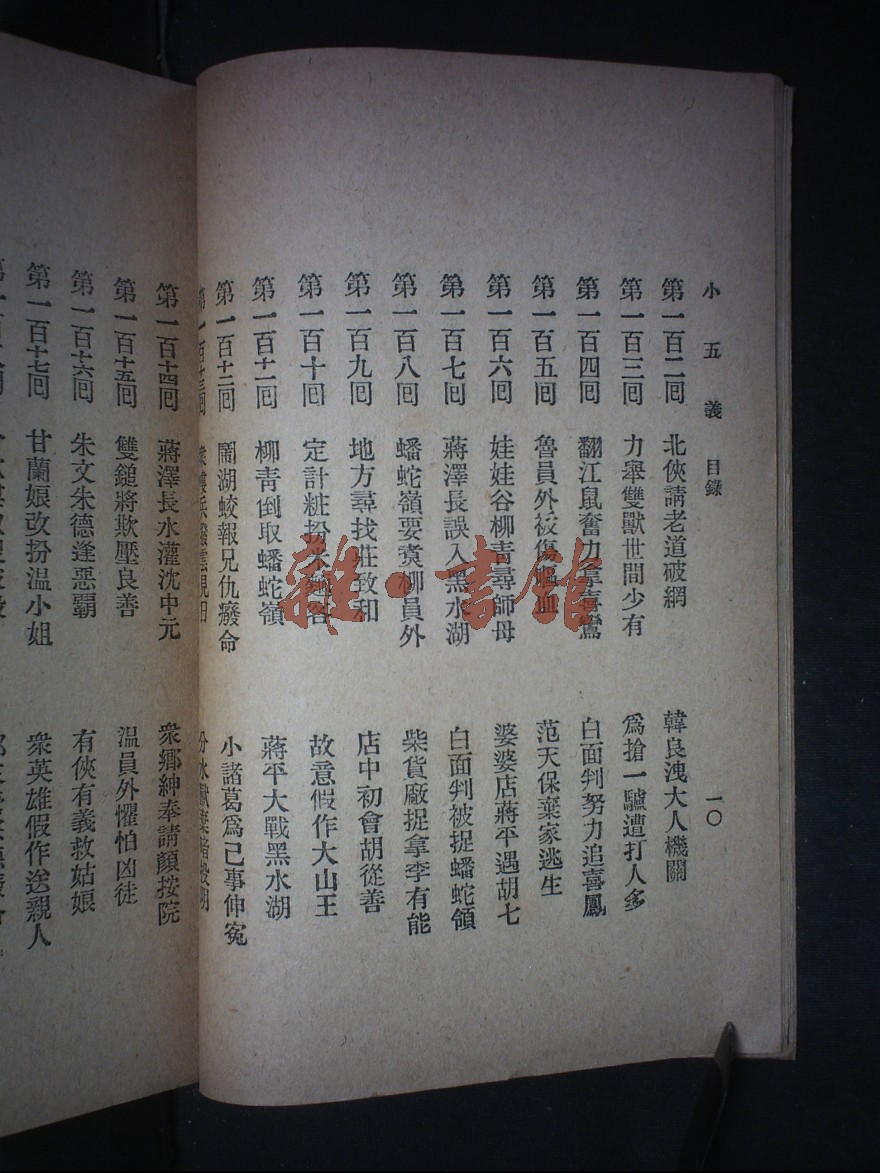 小五義 目錄 一〇
第一百二回 北俠請老道破網 韓良洩大人機關
第一百三回 力舉雙獸世間少有 爲搶一驢遭打人多
第一百四回 翻江鼠奮力拿喜鸞 白面判努力追喜鳳
第一百五回 魯員外被傷嘔血 范天保棄家逃生
第一百六回 娃娃谷柳青尋師母 婆婆店蔣平遇胡七
第一百七回 蔣澤長誤入黑水湖 白面判被捉蟠蛇領
第一百八回 蟠蛇嶺要煑柳員外 柴貨廠捉拿李有能
第一百九回 地方尋找莊致和 店中初會胡從善
第一百十回 定計粧扮米麵客 故意假作大山王
第一百十一回 柳青倒取蟠蛇嶺 蔣平大戰黑水湖
第一百十二回 鬧湖蛟報兄仇廢命 小諸葛爲己事伸冤
第一百十三回
第一百十四回 蔣澤長水灌沈中元 衆鄉紳奉請顔按院
第一百十五回 雙鎚將欺壓良善 温員外懼怕凶徒
第一百十六回 朱文朱德逢惡霸 有俠有義救姑娘
第一百十七回 甘蘭娘改扮温小姐 衆英雄假作送親人
雜·書館